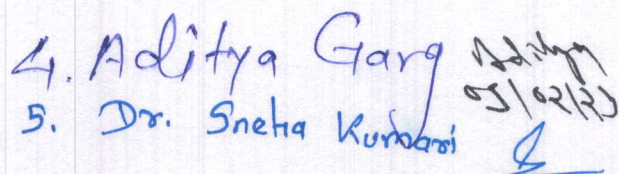 4. Aditya Garg Aditya
05/02/25
5. Dr. Sneha Kumari